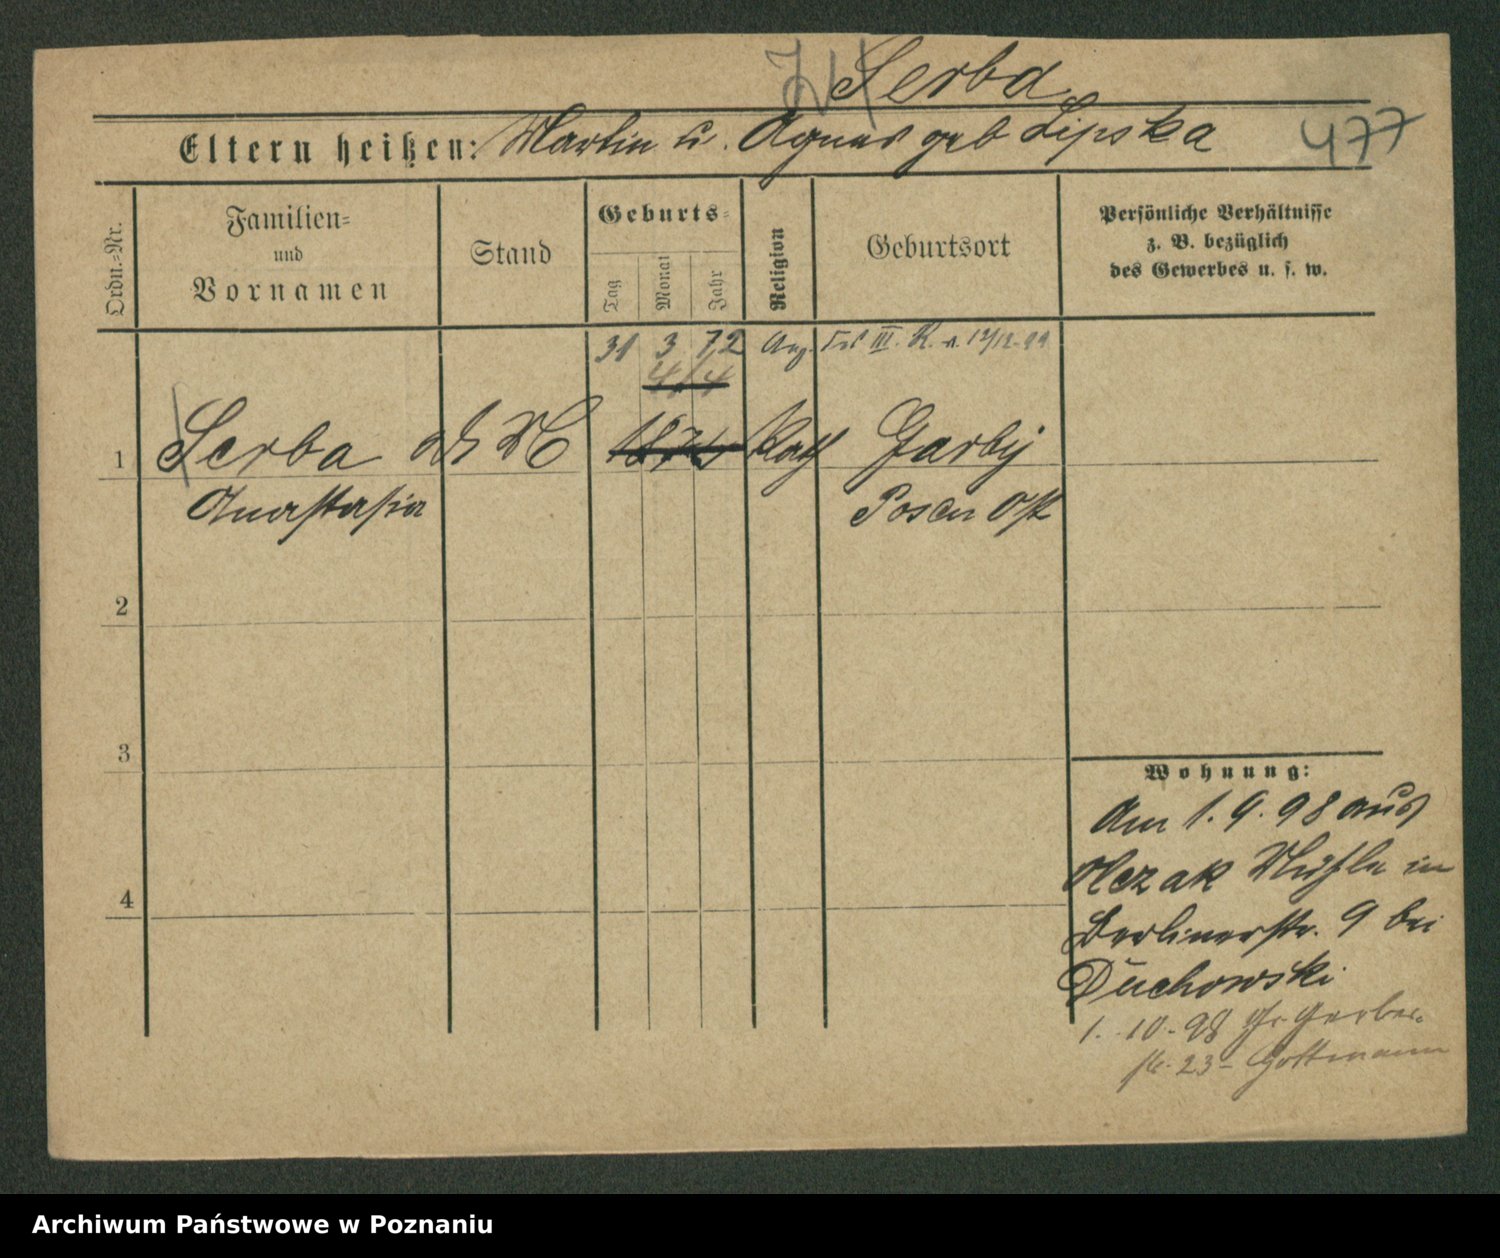 Serba
Eltern heißen: Martin u. Agnes geb Lipska
477
Ordn.-Nr.
Familien-
und
Vornamen
Stand
Geburts-
Tag
Monat
Jahr
Religion
Geburtsort
Persönliche Verhältnisse
z. B. bezüglich
des Gewerbes u. s. w.
31 3 72 III. R. v. 12/12.99
4/4
1 Serba Kath Garby
Anastasia Posen Ost
2
3
4
Wohnung:
Am 1. 9. 98 aus
Olczak Mühle in
Berlinerstr. 9 bei
Duchowski
1. 10. 98 Gr. Gerber-
str. 23 - Gottmann
Archiwum Państwowe w Poznaniu